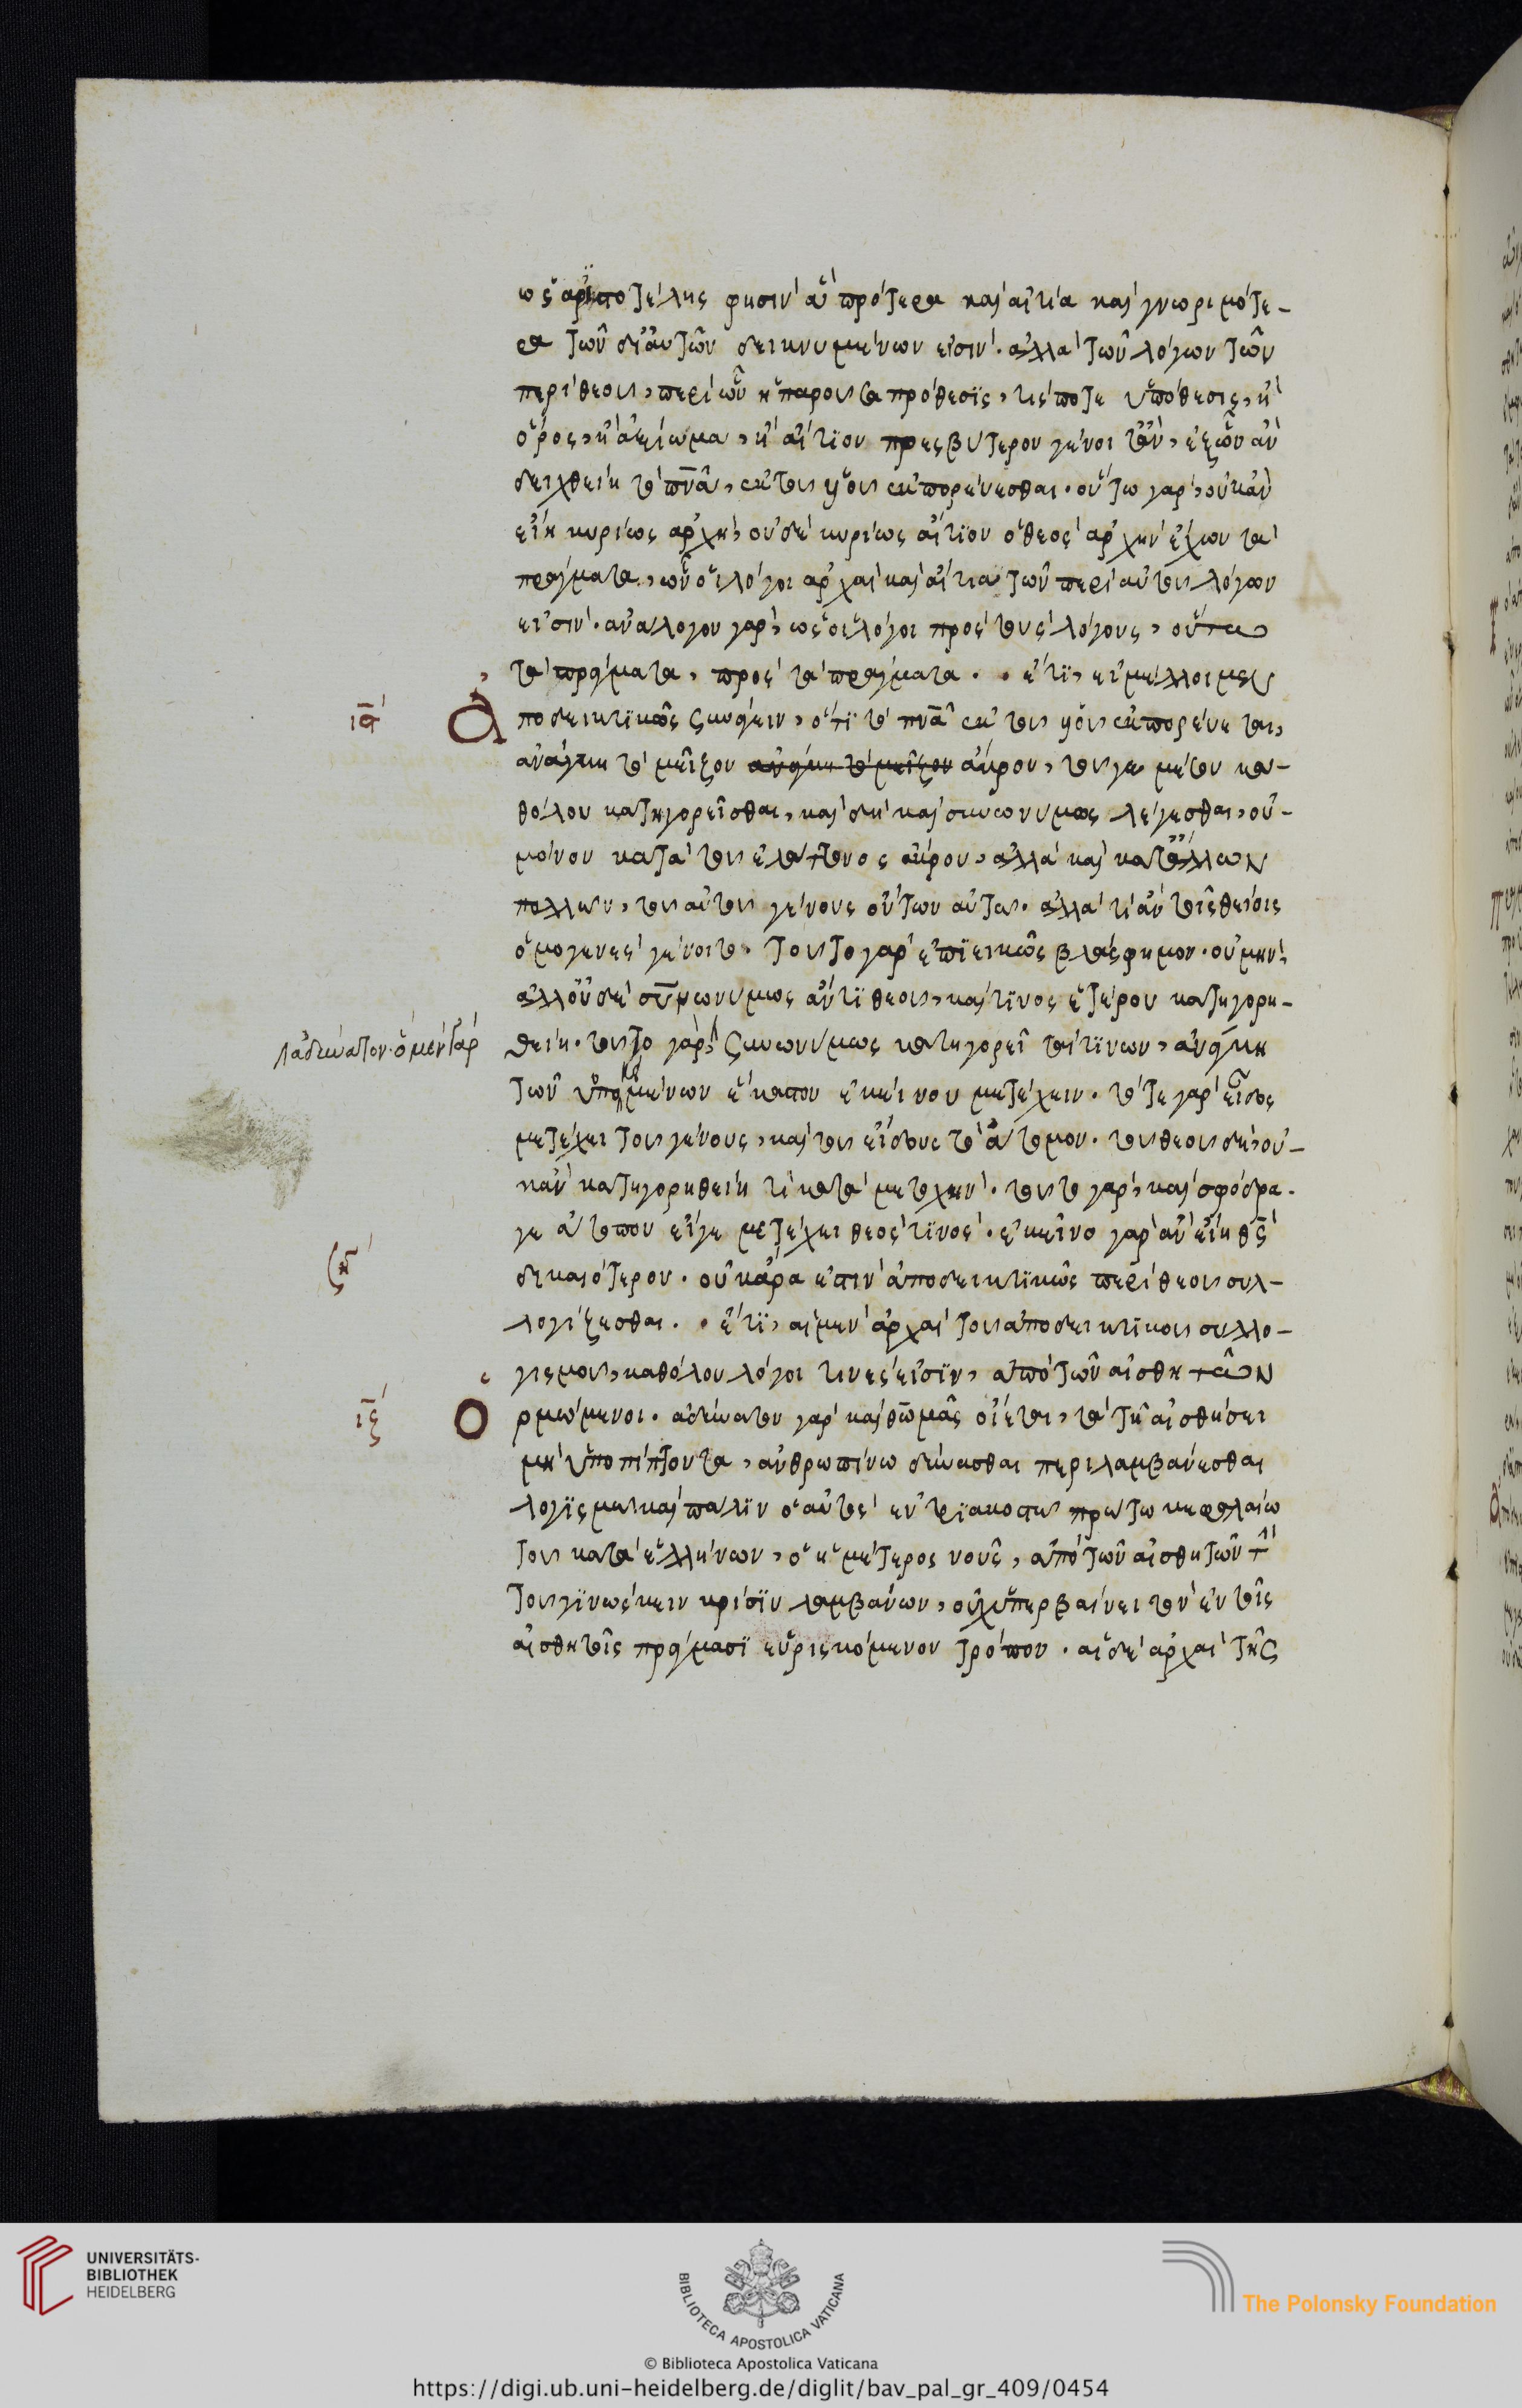 ὡς ἀριστοτέλης φησὶν ἃ πρότερα καὶ αἴτια καὶ γνωριμότε-
ρα τῶν δι' αὐτῶν δεικνυμένων εἰσίν· ἀλλὰ τῶν λόγων τῶν
περὶ θεοῦ, περὶ ὧν ἡ παροῦσα πρόθεσις, τίς ποτε ὑπόθεσις, ἢ
ὅρος, ἢ ἀξίωμα, ἢ αἴτιον πρεσβύτερον γένοιτ' ἂν, ἐξ ὧν ἂν
δειχθείη τὸ πνᾶ, ἐκ τοῦ υἱοῦ ἐκπορεύεσθαι· οὕτω γὰρ, οὐκ ἂν
εἴη κυρίως ἀρχὴ, οὐδὲ κυρίως αἴτιον ὁ θεὸς ἀρχὴν ἔχων τὰ
πράγματα, ὧν οἱ λόγοι ἀρχαὶ καὶ αἴτια τῶν περὶ αὐτοῦ λόγων
εἰσίν· ἀνάλογον γὰρ, ὡς οἱ λόγοι πρὸς τοὺς λόγους, οὕτω
τὰ πράγματα, πρὸς τὰ πράγματα· · ἔτι, εἰ μέλλοιμεν
ια Ἀποδεικτικῶς συνάγειν, ὅτι τὸ πνᾶ ἐκ τοῦ υἱοῦ ἐκπορεύεται,
ἀνάγκη τὸ μεῖζον ἀνάγκη τὸ μεῖζον ἄκρον, τοῦ γε μέσου κα-
θόλου κατηγορεῖσθαι, καὶ δὴ καὶ συνωνύμως λέγεσθαι, οὐ-
μόνον κατὰ τοῦ ἐλάττονος ἄκρου, ἀλλὰ καὶ κατ' ἄλλων
πολλῶν, τοῦ αὐτοῦ γένους ὄντων αὐτῷ· ἀλλὰ τί ἂν τοῖς θείοις
ὁμογενὲς γένοιτο, τοῦτο γὰρ ἐπιεικῶς βλάσφημον· οὐ μὴν
ἀλλ' οὐδὲ συνωνύμως ἄν τι θεοῦ, καί τινος ἑτέρου κατηγορη-
λἀδύνατον· ὃ μὲν γὰρ
θείη· τοῦτο γὰρ, συνωνύμως κατηγορεῖταί τινων, ἀνάγκη
τῶν ὑποκειμένων ἕκαστον ἐκείνου μετέχειν· τό τε γὰρ εἶδος
μετέχει τοῦ γένους, καὶ τοῦ εἴδους τὸ ἄτομον· τοῦ θεοῦ δὲ, οὐ-
κ ἂν κατηγορηθείη τὶ κατὰ μετοχήν· τοῦτο γὰρ, καὶ σφόδρα-
γε ἄτοπον εἴγε μετέχει θεὸς τινός· ἐκεῖνο γὰρ ἂν εἴη θς
δικαιότερον· οὐκ ἄρα ἐστὶν ἀποδεικτικῶς περὶ θεοῦ συλ-
λογίζεσθαι· · ἔτι, αἱ μὲν ἀρχαὶ τοῦ ἀποδεικτικοῦ συλλο-
γισμοῦ, καθόλου λόγοι τινές εἰσιν, ἀπὸ τῶν αἰσθητῶν
ις Ὁρμώμενοι· ἀδύνατον γὰρ καὶ θωμᾶς οἴεται, τὰ τῇ αἰσθήσει
μὴ ὑποπίπτοντα, ἀνθρωπίνῳ δύνασθαι περιλαμβάνεσθαι
λογισμῷ καὶ πάλιν ὁ αὐτὸς ἐν τριακοστῷ πρώτῳ κεφαλαίῳ
τοῦ κατὰ ἑλλήνων, ὁ ἡμέτερος νοῦς, ἀπὸ τῶν αἰσθητῶν τὴν
τοῦ γινώσκειν κρίσιν λαμβάνων, οὐχ ὑπερβαίνει τὸν ἐν τοῖς
αἰσθητοῖς πράγμασι εὑρισκόμενον τρόπον· αἱ δὲ ἀρχαὶ τῆς
UNIVERSITÄTS-
BIBLIOTHEK
HEIDELBERG
BIBLIOTECA APOSTOLICA VATICANA
The Polonsky Foundation
© Biblioteca Apostolica Vaticana
https://digi.ub.uni-heidelberg.de/diglit/bav_pal_gr_409/0454